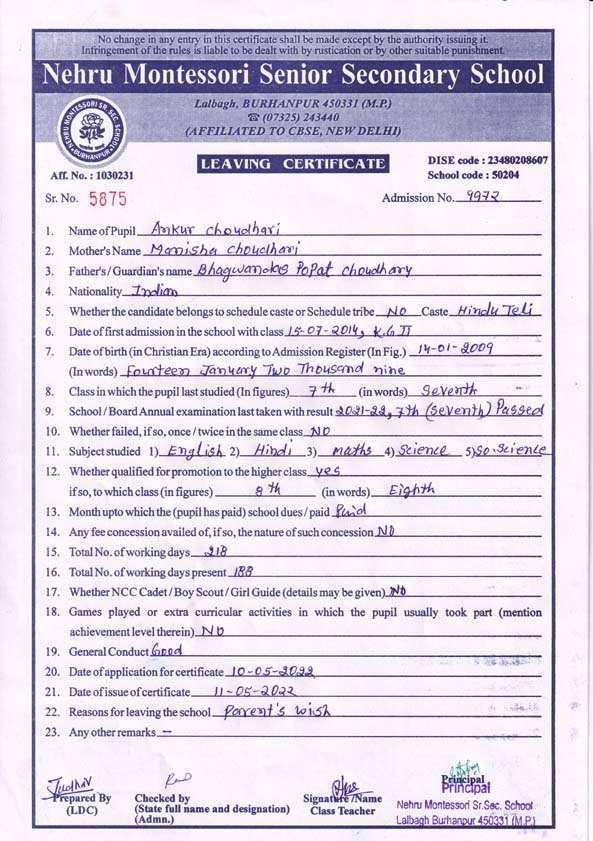 No change in any entry in this certificate shall be made except by the authority issuing it.
Infringement of the rules is liable to be dealt with by rustication or by other suitable punishment.
Nehru Montessori Senior Secondary School
Lalbagh, BURHANPUR 450331 (M.P.)
☎ (07325) 243440
(AFFILIATED TO CBSE, NEW DELHI)
NEHRU MONTESSORI SR. SEC. SCHOOL
BURHANPUR
LEAVING CERTIFICATE
DISE code : 23480208607
Aff. No. : 1030231 School code : 50204
Sr. No. 5875 Admission No. 9972
1. Name of Pupil Ankur Choudhari
2. Mother's Name Manisha Choudhari
3. Father's / Guardian's name Bhagwandas Popat Choudhary
4. Nationality Indian
5. Whether the candidate belongs to schedule caste or Schedule tribe NO Caste Hindu Teli
6. Date of first admission in the school with class 15-07-2014, K.G II
7. Date of birth (in Christian Era) according to Admission Register (In Fig.) 14-01-2009
(In words) Fourteen January Two Thousand nine
8. Class in which the pupil last studied (In figures) 7th (in words) Seventh
9. School / Board Annual examination last taken with result 2021-22, 7th (Seventh) Passed
10. Whether failed, if so, once / twice in the same class NO
11. Subject studied 1) English 2) Hindi 3) maths 4) Science 5) So. Science
12. Whether qualified for promotion to the higher class yes
if so, to which class (in figures) 8th (in words) Eighth
13. Month upto which the (pupil has paid) school dues / paid Paid
14. Any fee concession availed of, if so, the nature of such concession NO
15. Total No. of working days 218
16. Total No. of working days present 188
17. Whether NCC Cadet / Boy Scout / Girl Guide (details may be given) NO
18. Games played or extra curricular activities in which the pupil usually took part (mention
achievement level therein) NO
19. General Conduct Good
20. Date of application for certificate 10-05-2022
21. Date of issue of certificate 11-05-2022
22. Reasons for leaving the school Parent's wish
23. Any other remarks –
Prepared By
(LDC)
Checked by
(State full name and designation)
(Admn.)
Signature /Name
Class Teacher
Principal
Principal
Nehru Montessori Sr.Sec. School
Lalbagh Burhanpur 450331 (M.P.)